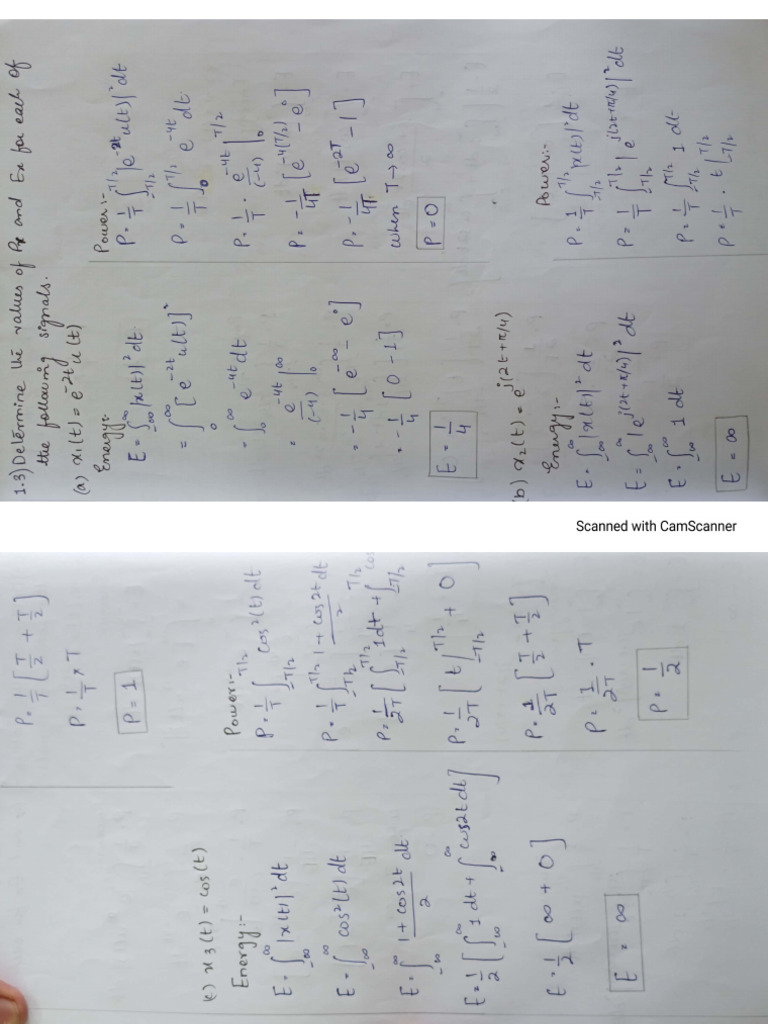 1.3) Determine the values of P∞ and E∞ for each of
the following signals.
(a) x₁(t) = e^{-2t} u(t)
Energy:-
E = ∫_{-∞}^{∞} |x(t)|² dt
= ∫_{0}^{∞} [e^{-2t} u(t)]²
= ∫_{0}^{∞} e^{-4t} dt
= e^{-4t}/(-4) |_{0}^{∞}
= -1/4 [e^{-∞} - e^{0}]
= -1/4 [0 - 1]
E = 1/4
Power:-
P = 1/T ∫_{-T/2}^{T/2} |e^{-2t} u(t)|² dt
P = 1/T ∫_{0}^{T/2} e^{-4t} dt
P = 1/T · e^{-4t}/(-4) |_{0}^{T/2}
P = -1/4T [e^{-4(T/2)} - e^{0}]
P = -1/4T [e^{-2T} - 1]
when T→∞
P = 0
(b) x₂(t) = e^{j(2t+π/4)}
Energy:-
E = ∫_{-∞}^{∞} |x(t)|² dt
E = ∫_{-∞}^{∞} |e^{j(2t+π/4)}|² dt
E = ∫_{-∞}^{∞} 1 dt
E = ∞
Power:-
P = 1/T ∫_{-T/2}^{T/2} |x(t)|² dt
P = 1/T ∫_{-T/2}^{T/2} |e^{j(2t+π/4)}|² dt
P = 1/T ∫_{-T/2}^{T/2} 1 dt
P = 1/T · t |_{-T/2}^{T/2}
Scanned with CamScanner
P = 1/T [T/2 + T/2]
P = 1/T × T
P = 1
c) x₃(t) = cos(t)
Energy:-
E = ∫_{-∞}^{∞} |x(t)|² dt
E = ∫_{-∞}^{∞} cos²(t) dt
E = ∫_{-∞}^{∞} (1 + cos2t)/2 dt
E = 1/2 [∫_{-∞}^{∞} 1 dt + ∫_{-∞}^{∞} cos2t dt]
E = 1/2 [∞ + 0]
E = ∞
Power:-
P = 1/T ∫_{-T/2}^{T/2} cos²(t) dt
P = 1/T ∫_{-T/2}^{T/2} (1 + cos2t)/2 dt
P = 1/2T [∫_{-T/2}^{T/2} 1 dt + ∫_{-T/2}^{T/2}
P = 1/2T [t |_{-T/2}^{T/2} + 0]
P = 1/2T [T/2 + T/2]
P = 1/2T · T
P = 1/2